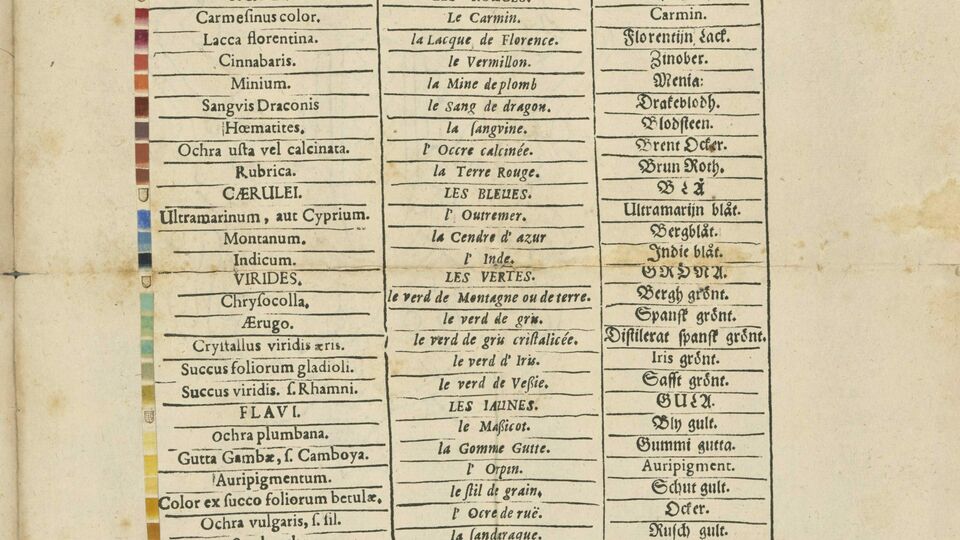 Carmesinus color. Le Carmin. Carmin.
Lacca florentina. la Lacque de Florence. Florentijn Lack.
Cinnabaris. le Vermillon. Zinober.
Minium. la Mine de plomb Menia:
Sangvis Draconis le Sang de dragon. Drakeblodh.
Hœmatites. la ſangvine. Blodsteen.
Ochra uſta vel calcinata. l' Occre calcinée. Brent Ocker.
Rubrica. la Terre Rouge. Brun Roth.
CÆRULEI. LES BLEUES. BLÅ
Ultramarinum, aut Cyprium. l' Outremer. Ultramarijn blåt.
Montanum. la Cendre d' azur Bergblåt.
Indicum. l' Inde. Indie blåt.
VIRIDES. LES VERTES. GRÖNA.
Chryſocolla. le verd de Montagne ou de terre. Bergh grönt.
Ærugo. le verd de gris. Spanſk grönt.
Cryſtallus viridis æris. le verd de gris criſtalicée. Diſtilerat ſpanſk grönt.
Succus foliorum gladioli. le verd d' Iris. Iris grönt.
Succus viridis. ſ. Rhamni. le verd de Veßie. Safft grönt.
FLAVI. LES IAUNES. GULA.
Ochra plumbana. le Maßicot. Bly gult.
Gutta Gambæ, ſ. Camboya. la Gomme Gutte. Gummi gutta.
Auripigmentum. l' Orpin. Auripigment.
Color ex ſucco foliorum betulæ. le ſtil de grain. Schut gult.
Ochra vulgaris, ſ. ſil. l' Ocre de ruë. Ocker.
la ſandaraque. Ruſch gult.